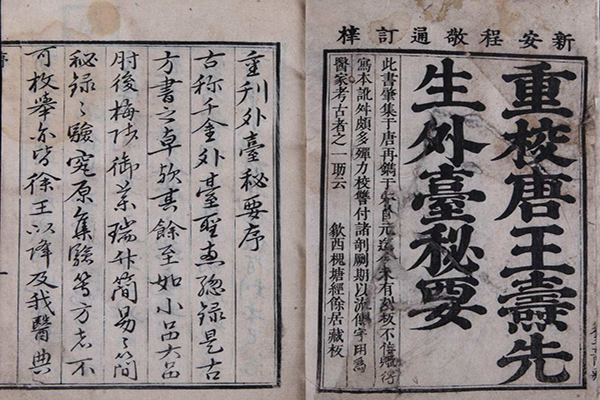 新安程敬通訂梓
重校唐王燾先
生外臺秘要
此書肇集于唐再鐫于宋自元迄今未有刻板不佞購得
寫本訛舛頗多殫力校讐付諸剞劂期以流傳用爲
醫家考古者之一助云 歙西槐塘經餘居藏板
重刊外臺秘要序
古称千金外臺聖惠總錄是古
方書之卓欤其餘至如小品大品
肘後梅師御藥瑞竹簡易々簡
秘録々驗究原集驗等方書不
可枚舉亦皆徐王以降及我醫典